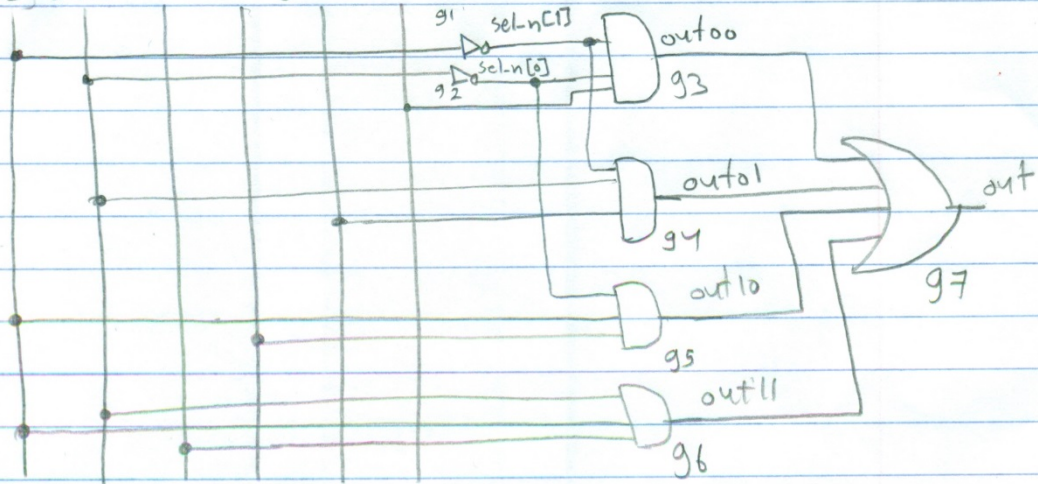 g1
sel-n[1]
out00
sel-n[0]
g2
g3
out01
out
g4
out10
g7
g5
out11
g6